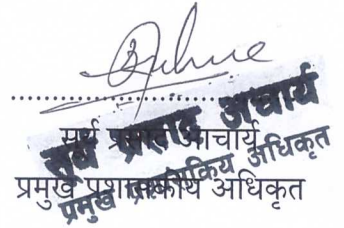 सूर्य प्रसाद आचार्य
प्रमुख प्रशासकीय अधिकृत
सूर्य प्रसाद आचार्य
प्रमुख प्रशासकिय अधिकृत